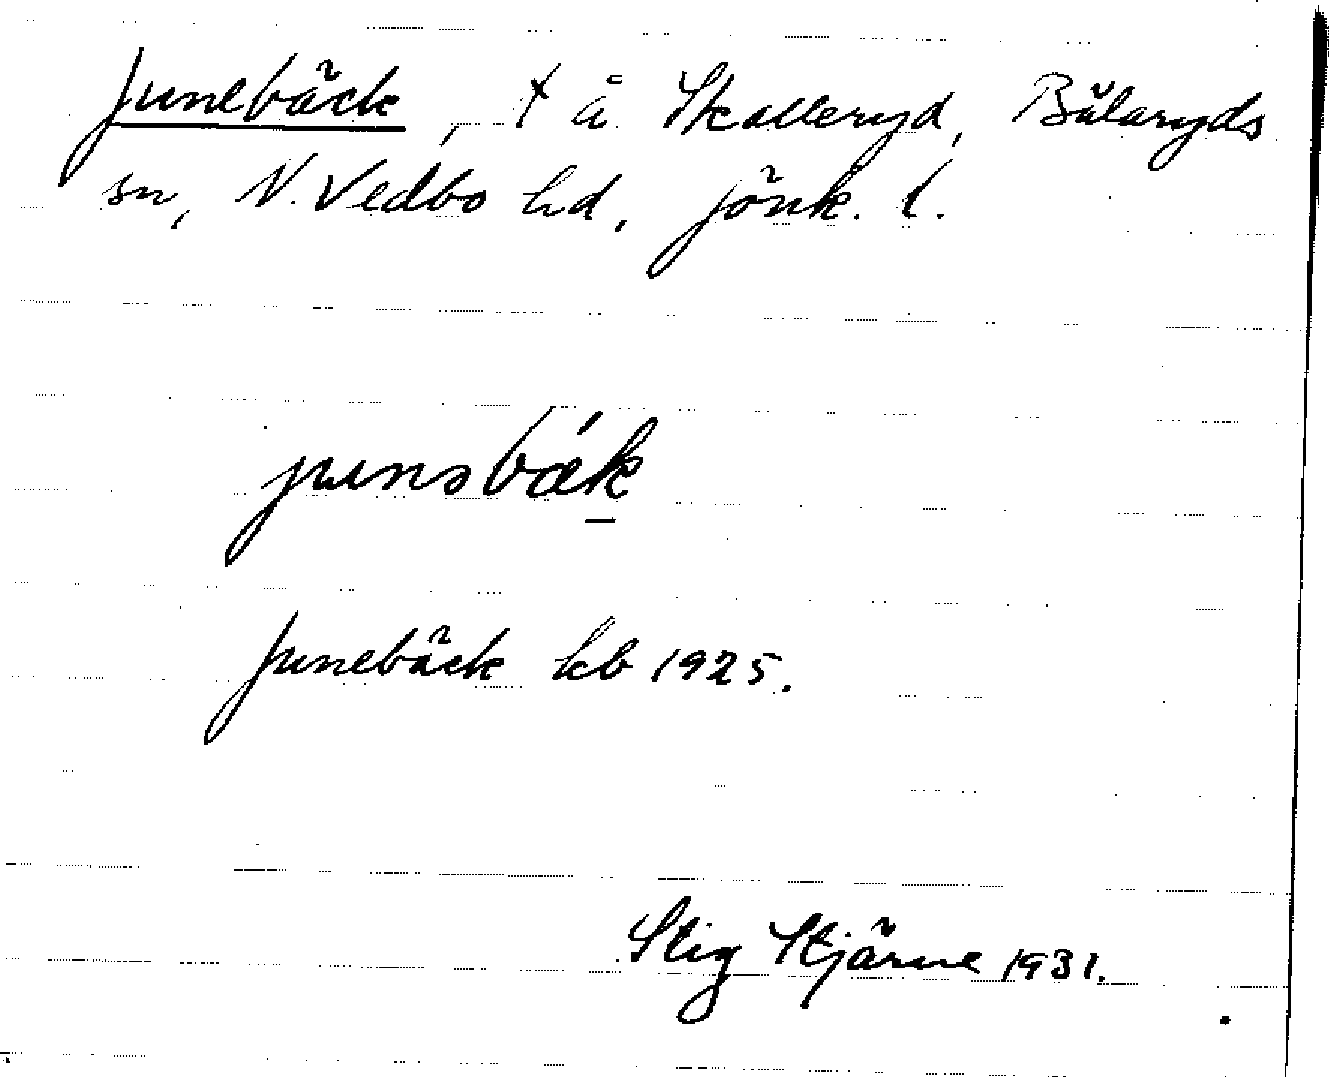 Junebäck, t å Skalleryd, Bälaryds
sn, N. Vedbo hd, Jönk. l.
junəbǽk
Junebäck kb 1925.
Stig Stjärne 1931.